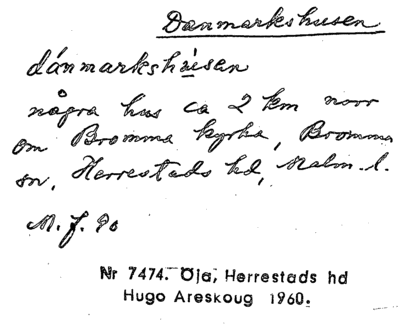 Danmarkshusen
dánmarkshùsen
några hus ca 2 km norr
om Bromma kyrka, Bromma
sn, Herrestads hd, Malm. l.
M. J. 90
Nr 7474. Öja, Herrestads hd
Hugo Areskoug 1960.